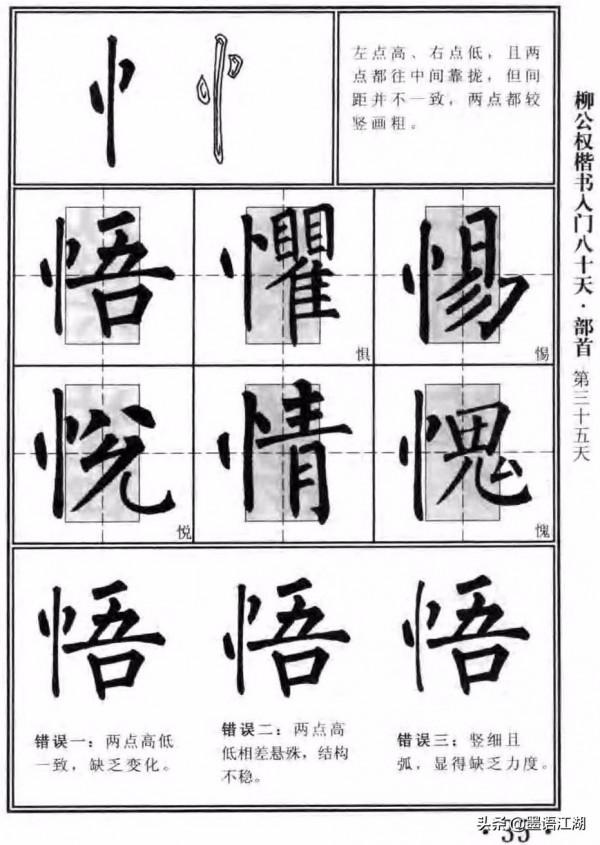 忄 忄
左点高、右点低，且两
点都往中间靠拢，但间
距并不一致，两点都较
竖画粗。
悟 懼 惕
惧 惕
悅 情 愧
悦 愧
悟 悟 悟
错误一：两点高低
一致，缺乏变化。
错误二：两点高
低相差悬殊，结构
不稳。
错误三：竖细且
弧，显得缺乏力度。
柳公权楷书入门八十天·部首 第三十五天
头条@墨语江湖
·35·